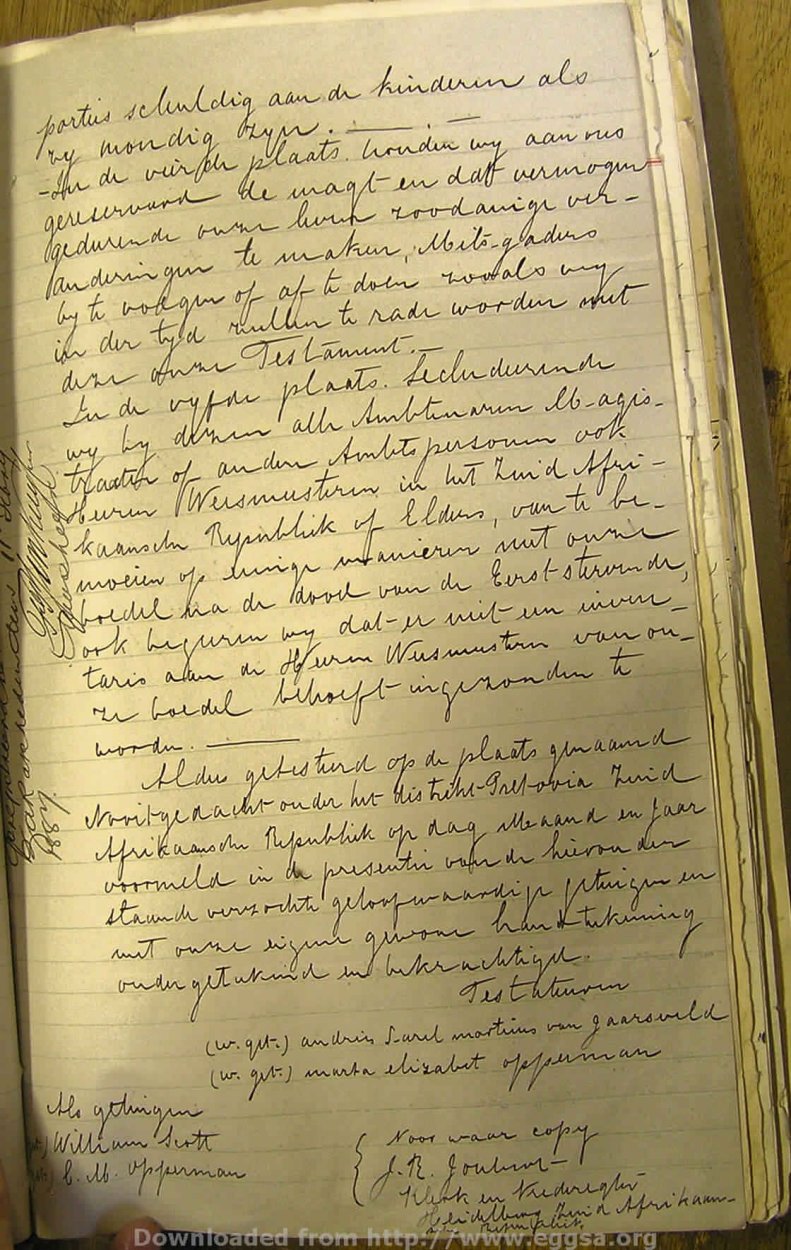 porties schuldig aan de kinderen als
zy mondig zyn. —
- In de vierde plaats. houden wy aan ons
gereserveerd de magt en dat vermogen
gedurende onze leven zoodanige ver-
anderingen te maken, Mits-gaders
by te voegen of af te doen zooals wy
in der tyd zullen te rade worden met
deze onze Testament. —
In de vyfde plaats. Secludeerende
wy by dezen alle Ambtenaren Magis-
traaten of andere Ambtspersonen ook
Heeren Weesmeesteren in het Zuid Afri-
kaansche Republiek of Elders, van te be-
moeien op eenige manieren met onze
boedel na de dood van de Eerst-stervende,
ook begeeren wy dat er niet een inven-
taris aan de Heeren Weesmeestern van on-
ze boedel behoeft ingezonden te
worden. —
Aldus getesteerd op de plaats genaamd
Nooitgedacht onder het distrikt Pretoria Zuid
Afrikaansche Republiek op dag Maand en Jaar
voormeld in de presentie van de hieronder
staande verzochte geloofwaardige getuigen en
met onze eigene gewone handtekening
onder getekend en bekrachtigd.
Testateuren
(w. get.) andries Sarel martinus van Jaarsveld
(w. get.) marta elizabet opperman
Als getuigen
get.) William Scott
get.) C. M. Opperman
Voor waar copy
J. R.
Klerk en Vrederegter
Heidelberg Zuid Afrikaan-
sche Republiek
11
1887.
Downloaded from http://www.eggsa.org